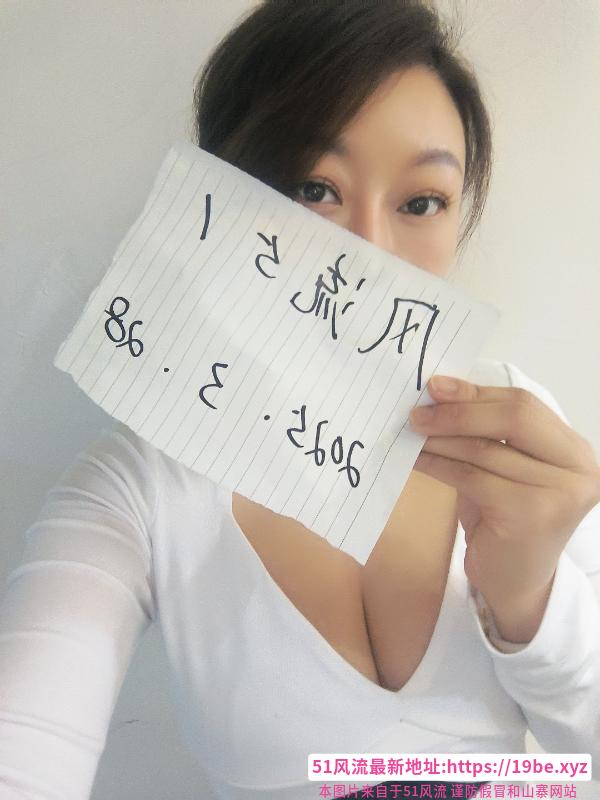 风流51
2025.3.28
51风流最新地址:https://19be.xyz
本图片来自于51风流 谨防假冒和山寨网站